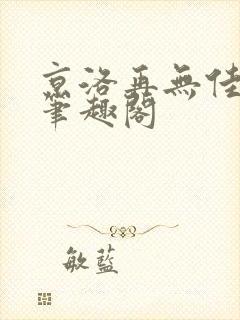 京洛再無佳
筆趣閣
敏藍